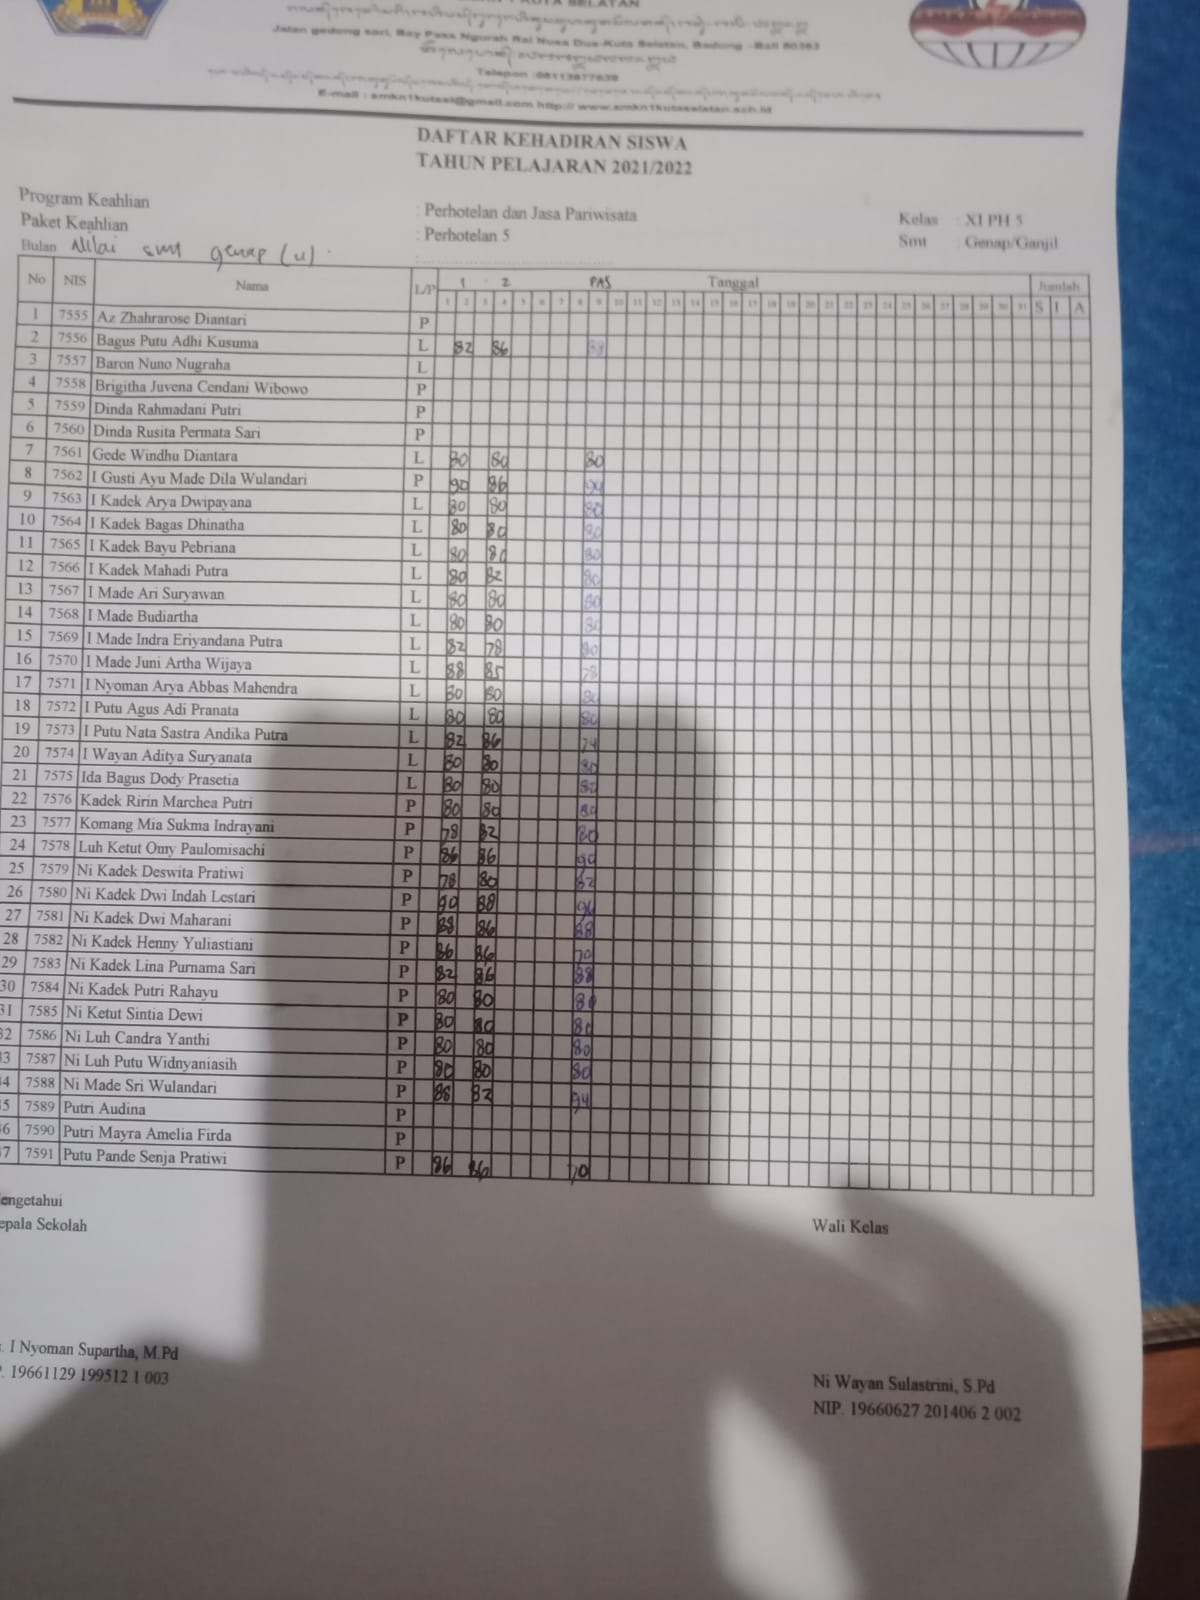 Jalan gedong sari, Bay Pass Ngurah Rai Nusa Dua-Kuta Selatan, Badung -Bali 80363
Telepon :08113877639
E-mail : smkn1kutsel@gmail.com http:// www.smkn1kutaselatan.sch.id
DAFTAR KEHADIRAN SISWA
TAHUN PELAJARAN 2021/2022
Program Keahlian : Perhotelan dan Jasa Pariwisata Kelas : XI PH 5
Paket Keahlian : Perhotelan 5 Smt : Genap/Ganjil
Bulan Nilai smt genap (u) :
No NIS Nama L/P 1 2 PAS Tanggal Jumlah
1 2 3 4 5 6 7 8 9 10 11 12 13 14 15 16 17 18 19 20 21 22 23 24 25 26 27 28 29 30 31 S I A
1 7555 Az Zhahrarose Diantari P
2 7556 Bagus Putu Adhi Kusuma L 82 86
3 7557 Baron Nuno Nugraha L
4 7558 Brigitha Juvena Cendani Wibowo P
5 7559 Dinda Rahmadani Putri P
6 7560 Dinda Rusita Permata Sari P
7 7561 Gede Windhu Diantara L 80 80 80
8 7562 I Gusti Ayu Made Dila Wulandari P 90 86 94
9 7563 I Kadek Arya Dwipayana L 80 80 80
10 7564 I Kadek Bagas Dhinatha L 80 80 80
11 7565 I Kadek Bayu Pebriana L 80 80 80
12 7566 I Kadek Mahadi Putra L 80 82 80
13 7567 I Made Ari Suryawan L 80 80 80
14 7568 I Made Budiartha L 80 80 80
15 7569 I Made Indra Eriyandana Putra L 82 78 80
16 7570 I Made Juni Artha Wijaya L 88 85 78
17 7571 I Nyoman Arya Abbas Mahendra L 80 80 80
18 7572 I Putu Agus Adi Pranata L 80 80 80
19 7573 I Putu Nata Sastra Andika Putra L 82 86 74
20 7574 I Wayan Aditya Suryanata L 80 80 80
21 7575 Ida Bagus Dody Prasetia L 80 80 82
22 7576 Kadek Ririn Marchea Putri P 80 80 80
23 7577 Komang Mia Sukma Indrayani P 78 82 80
24 7578 Luh Ketut Omy Paulomisachi P 86 86 90
25 7579 Ni Kadek Deswita Pratiwi P 78 80 82
26 7580 Ni Kadek Dwi Indah Lestari P 90 88 96
27 7581 Ni Kadek Dwi Maharani P 88 86 88
28 7582 Ni Kadek Henny Yuliastiani P 86 86 70
29 7583 Ni Kadek Lina Purnama Sari P 82 86 88
30 7584 Ni Kadek Putri Rahayu P 80 80 80
31 7585 Ni Ketut Sintia Dewi P 80 80 80
32 7586 Ni Luh Candra Yanthi P 80 80 80
33 7587 Ni Luh Putu Widnyaniasih P 80 80 80
34 7588 Ni Made Sri Wulandari P 88 82 94
35 7589 Putri Audina P
36 7590 Putri Mayra Amelia Firda P
37 7591 Putu Pande Senja Pratiwi P 86 86 70
engetahui
epala Sekolah Wali Kelas
. I Nyoman Supartha, M.Pd
. 19661129 199512 1 003
Ni Wayan Sulastrini, S.Pd
NIP. 19660627 201406 2 002